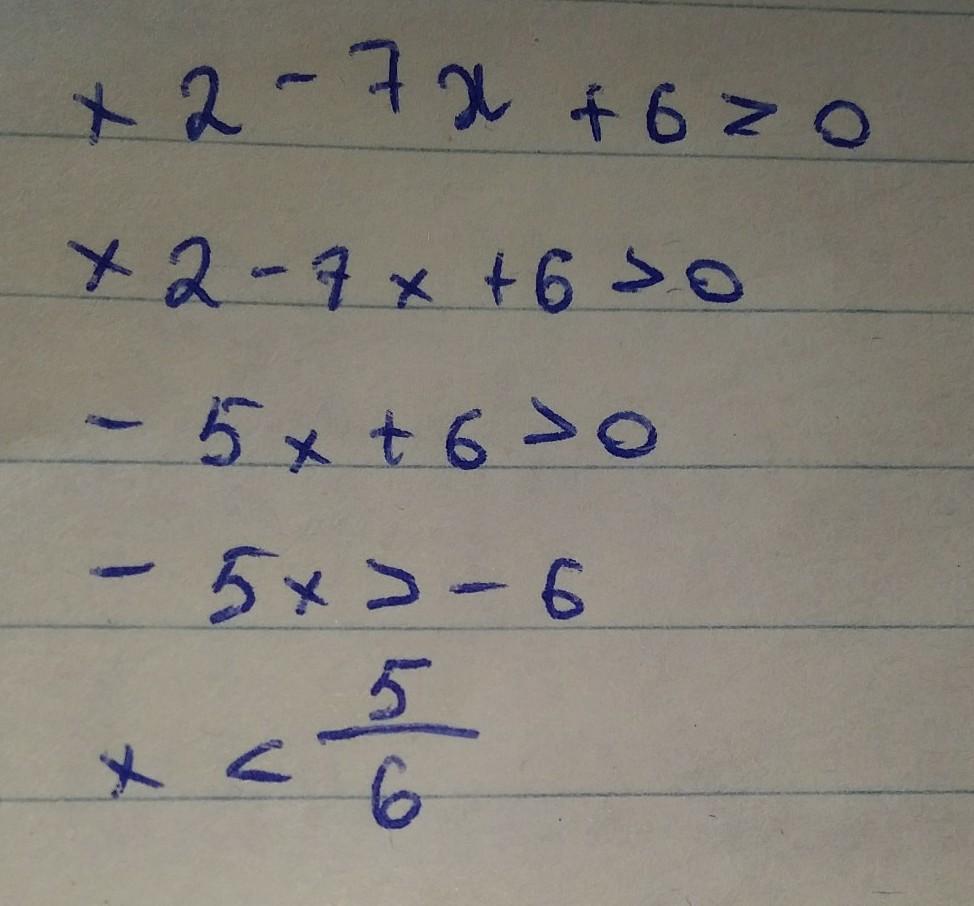 x 2 - 7x + 6 > 0
x 2 - 7x + 6 > 0
- 5x + 6 > 0
- 5x > - 6
x < 5/6